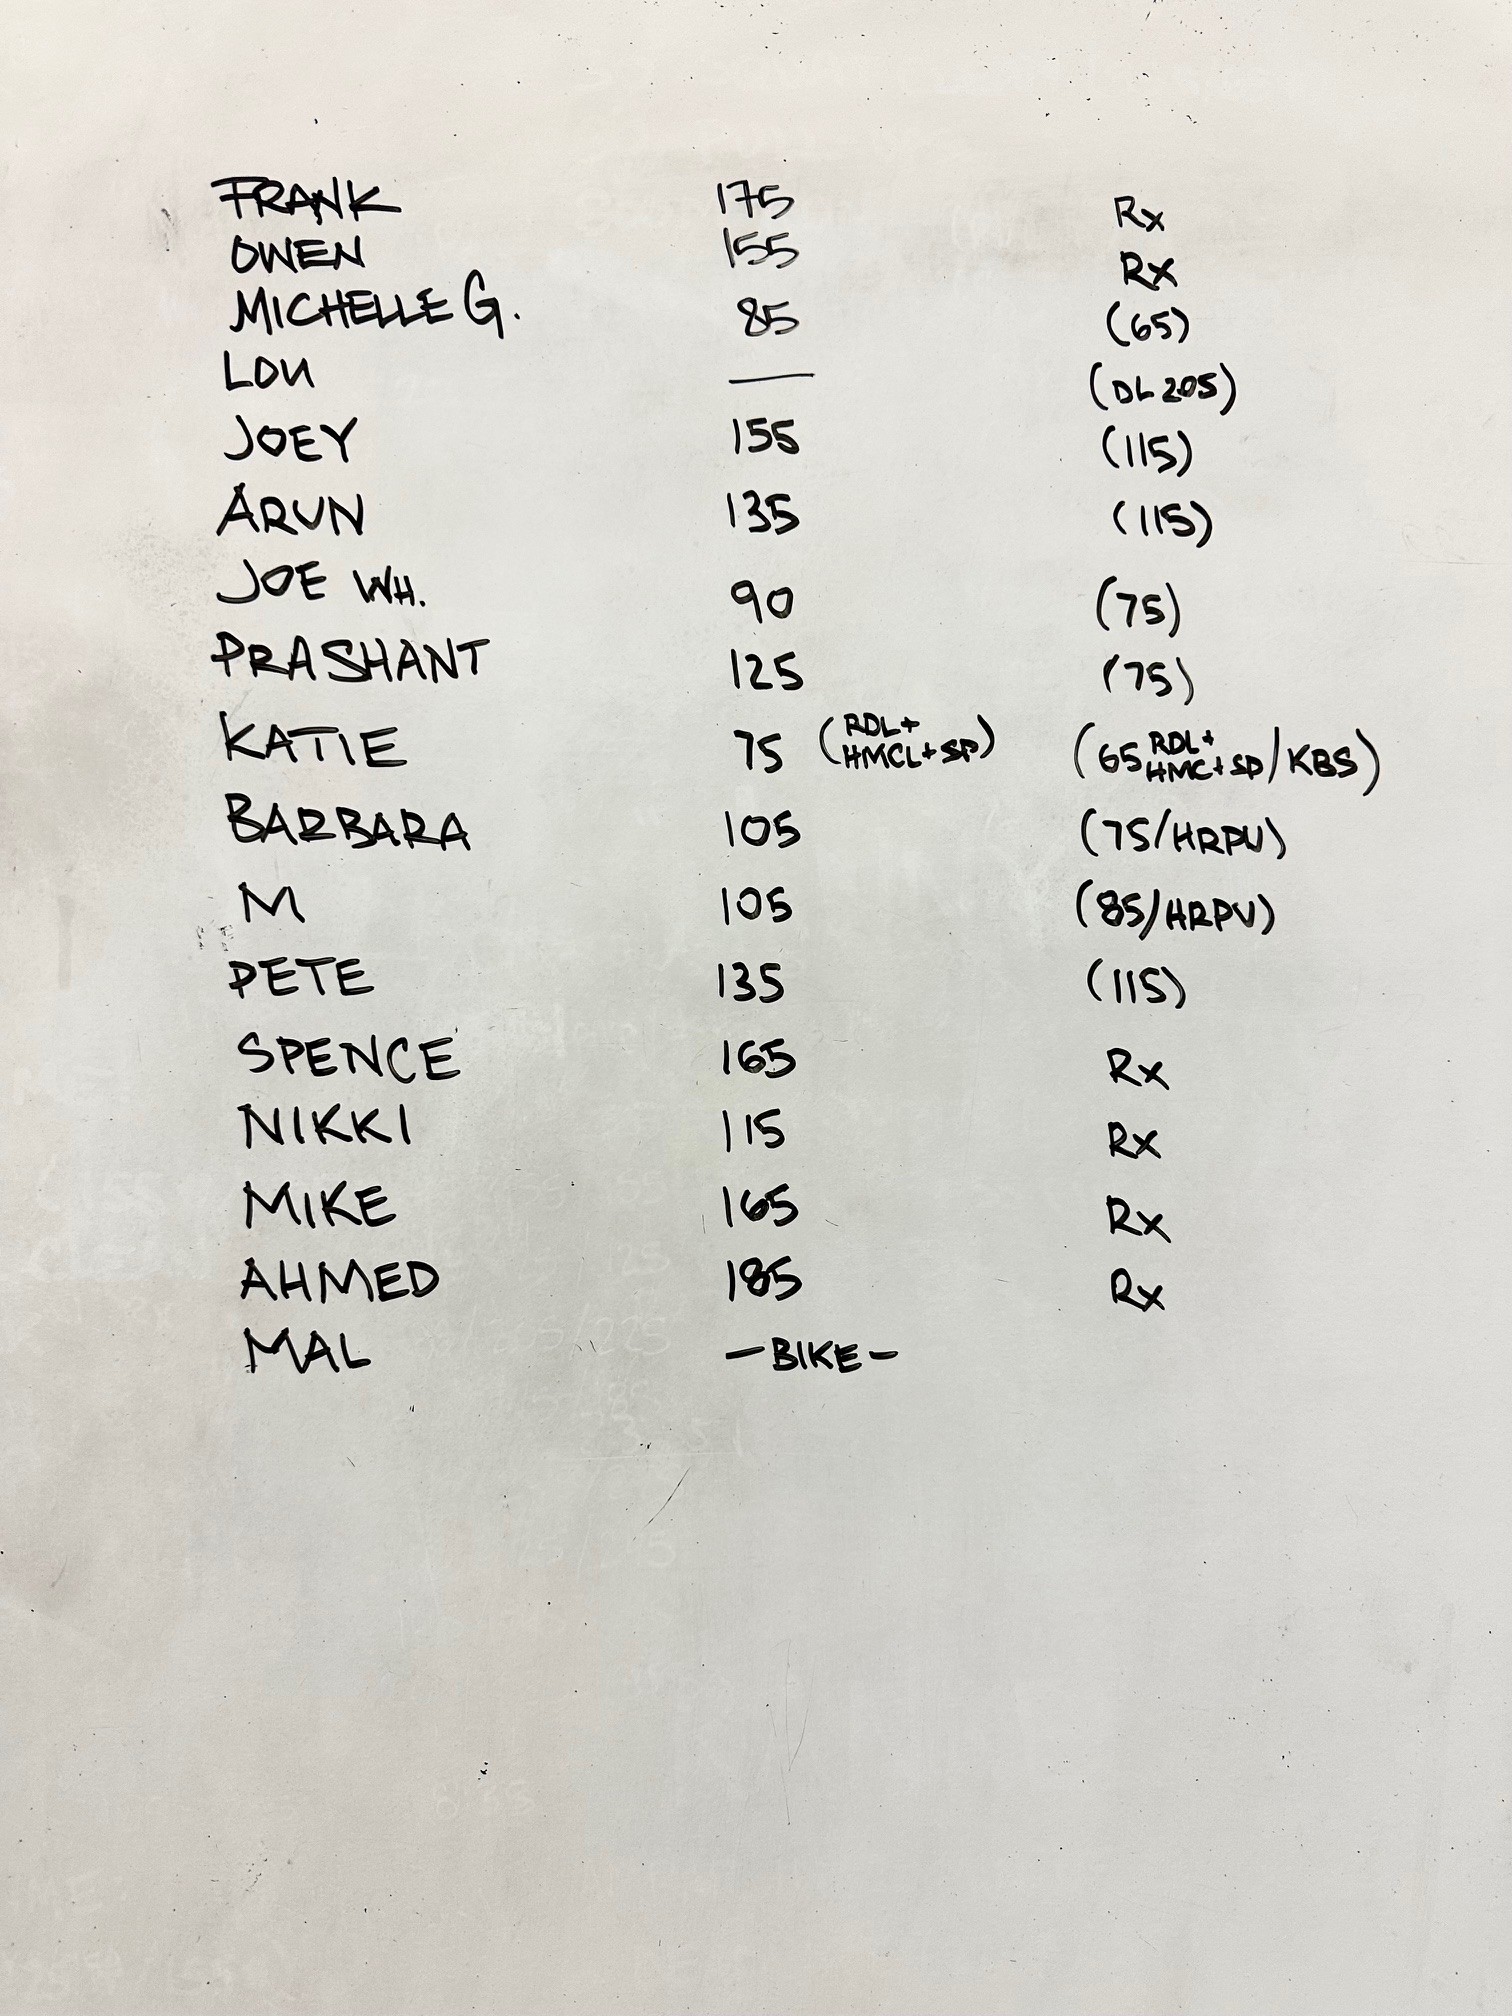 FRANK 175 Rx
OWEN 155 Rx
MICHELLE G. 85 (65)
LOU — (DL 205)
JOEY 155 (115)
ARUN 135 (115)
JOE WH. 90 (75)
PRASHANT 125 (75)
KATIE 75 (RDL+ HMCL+SP) (65 RDL+ HMC+SP/KBS)
BARBARA 105 (75/HRPU)
M 105 (85/HRPU)
PETE 135 (115)
SPENCE 165 Rx
NIKKI 115 Rx
MIKE 165 Rx
AHMED 185 Rx
MAL —BIKE—